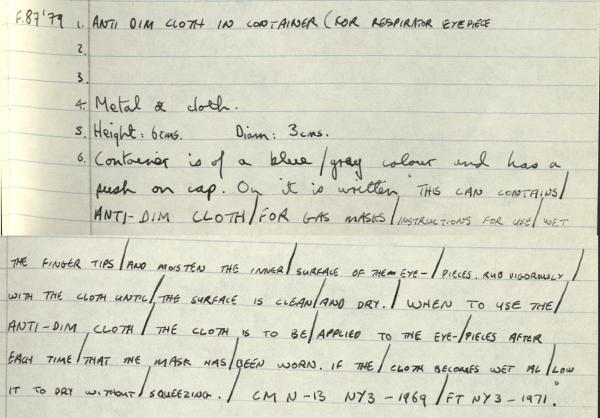 F.87'79 1. ANTI DIM CLOTH IN CONTAINER (FOR RESPIRATOR EYEPIECE
2.
3.
4. Metal & cloth.
5. Height: 6cms. Diam: 3cms.
6. Container is of a blue/gray colour and has a
push on cap. On it is written "THIS CAN CONTAINS/
ANTI-DIM CLOTH/FOR GAS MASKS/INSTRUCTIONS FOR USE/WET
THE FINGER TIPS/AND MOISTEN THE INNER/SURFACE OF THE EYE-/PIECES. RUB VIGOROUSLY/
WITH THE CLOTH UNTIL/THE SURFACE IS CLEAN/AND DRY./WHEN TO USE THE/
ANTI-DIM CLOTH/THE CLOTH IS TO BE/APPLIED TO THE EYE-/PIECES AFTER
EACH TIME/THAT THE MASK HAS/BEEN WORN. IF THE/CLOTH BECOMES WET AL/LOW
IT TO DRY WITHOUT/SQUEEZING./ CM N-13 NY3-1969/FT NY3-1971."